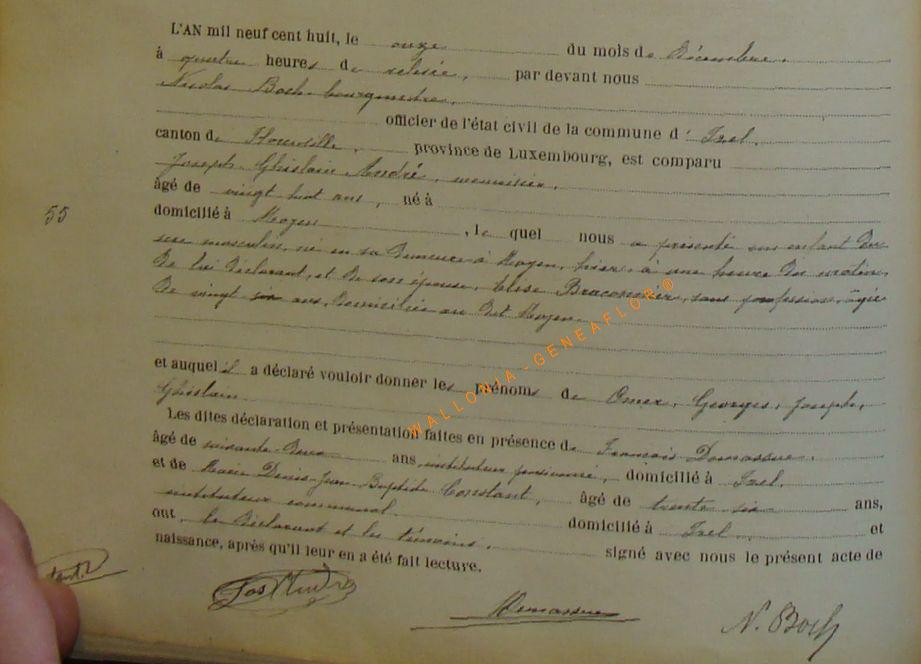 L'AN mil neuf cent huit, le onze du mois de Décembre,
à quatre heures de relevée, par devant nous
Nicolas Boch bourgmestre,
officier de l'état civil de la commune d' Izel,
canton de Florenville, province de Luxembourg, est comparu
Joseph Ghislain André, menuisier,
âgé de vingt huit ans, né à
55
domicilié à Moyen, le quel nous a présenté un enfant du
sexe masculin, né en sa demeure à Moyen, hier à une heure du matin,
de lui déclarant, et de son épouse, Braconnier, sans profession, âgée
de vingt six ans, domiciliée au dit Moyen.
et auquel il a déclaré vouloir donner les prénoms de Omer, Georges, Joseph,
Ghislain.
Les dites déclaration et présentation faites en présence de François Demasure,
âgé de soixante-deux ans, instituteur pensionné, domicilié à Izel,
et de Denis-Jean Baptiste Constant, âgé de trente six ans,
instituteur communal domicilié à Izel et
ont, le déclarant et les témoins, signé avec nous le présent acte de
naissance, après qu'il leur en a été fait lecture.
Jos André
N. Boch
WALLONIA-GENEAFLOR®